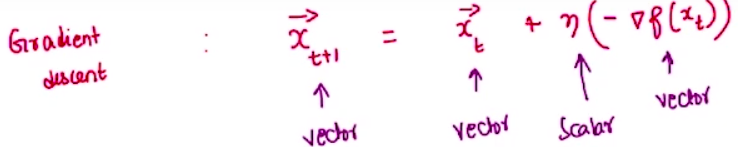 Gradient descent : x⃗_{t+1} = x⃗_t + η(- ∇f(x_t))
↑ ↑ ↑ ↑
vector vector Scalar vector